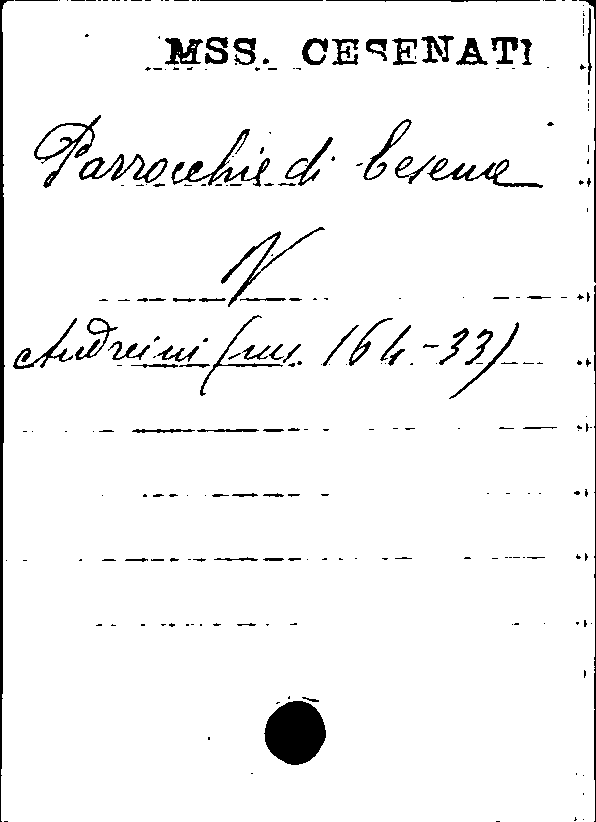 MSS. CESENATI
Parrocchie di Cesena
V
Andreini (ms. 164-33)